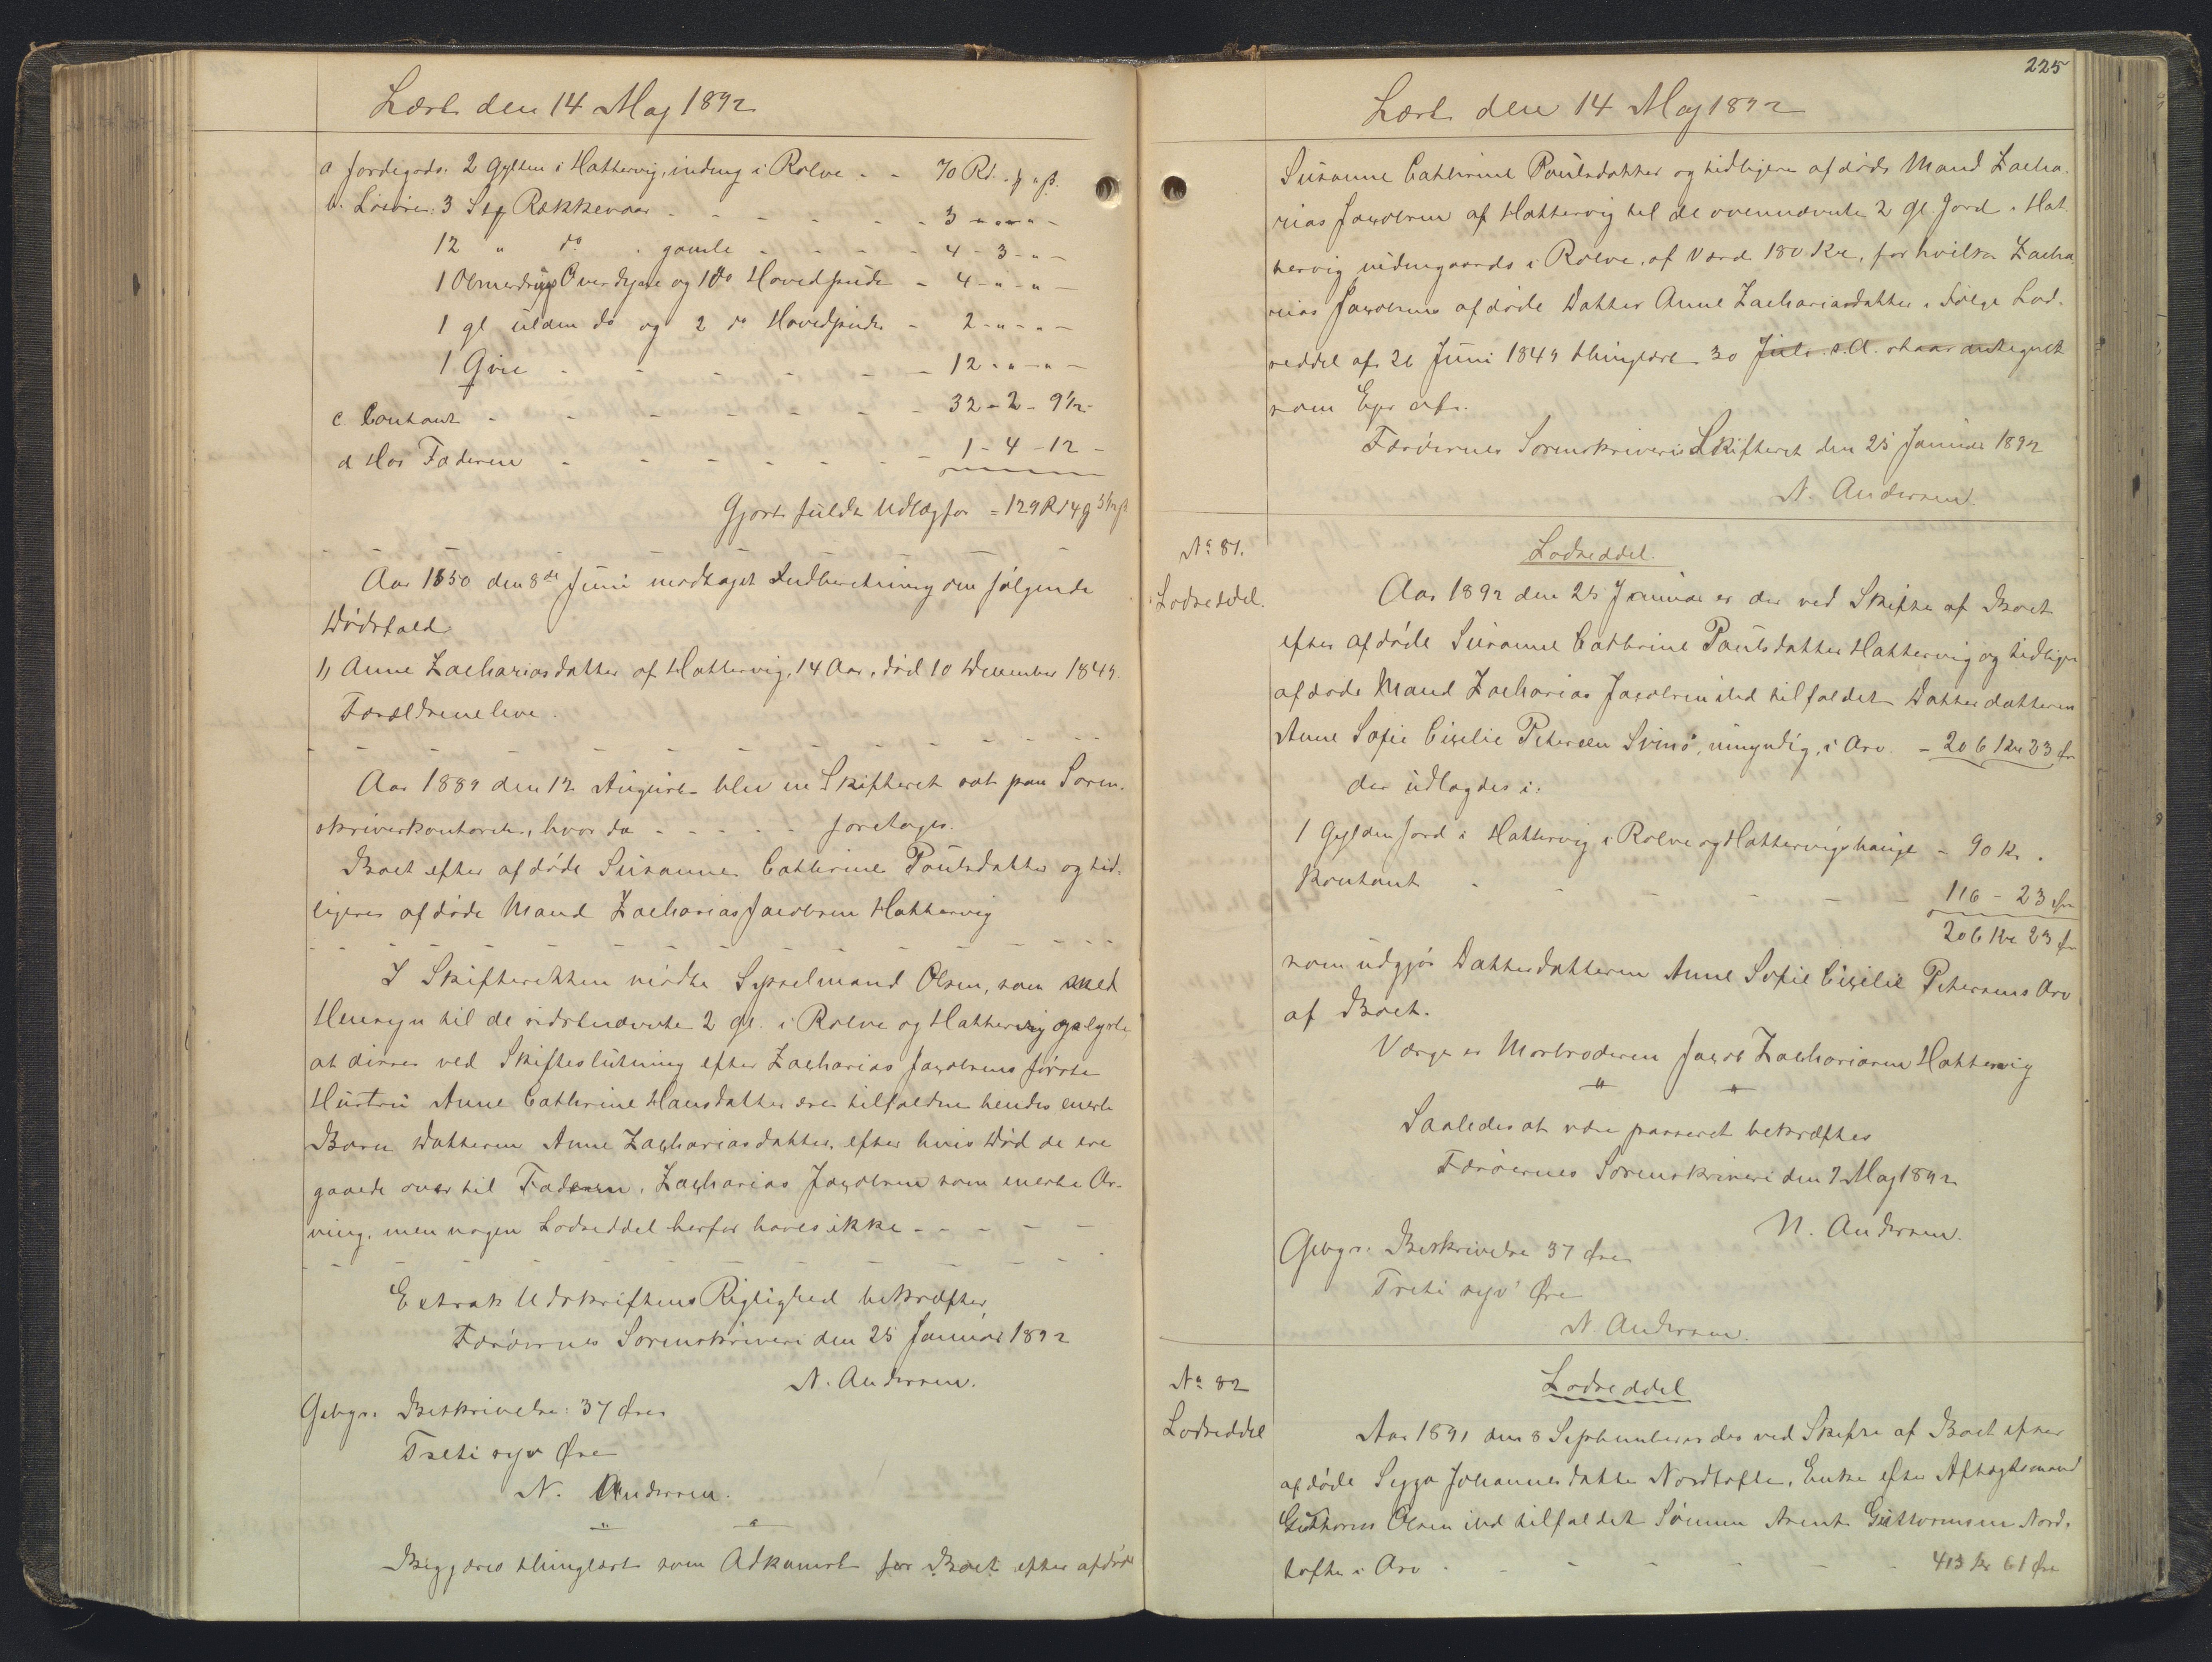 Læst den 14 Maj 1892
a Jordegods: 2 Gylden i Hattervig, indmg i Rolve - - 70 Rd. " ꝑ " ß.
b. Løsøre: 3 Stk Rækkevaar - - - - - - 3 - " - " -
12 " do . gamle - - - - - 4 - 3 - " -
1 Olmerdugs Overdyne og 1 do Hovedpude - 4 - " - " -
1 gl ulden do og 2 do Hovedpuder - 2 - " - " -
1 Qvie - - - - - - 12 - " - " -
c. Contant - - - - - - - 32 - 2 - 9½ -
d Hos Faderen - - - - - - - 1 - 4 - 12 -
Gjort fuldt Udlæg for = 129 Rd 4 ꝑ 5½ ß
Aar 1850 den 8de Juni modtaget Indberetning om følgende
Dødsfald
1) Anne Zachariasdatter af Hattervig, 14 Aar, død 10 December 1849.
Forældrene leve.
Aar 1889 den 12 August blev en Skifteret sat paa Soren-
skriverkontoret, hvor da - - - - - foretages.
Boet efter afdøde Susanne Cathrine Poulsdatter og tid-
ligere afdøde Mand Zacharias Jacobsen Hattervig
I Skifteretten mødte Sysselmand Olsen, som med
Hensyn til de sidstnævnte 2 gl. i Rolve og Hattervig oplyste
at disse ved Skifteslutning efter Zacharias Jacobsens første
Hustru Anne Cathrine Hansdatter ere tilfaldne hendes eneste
Barn Datteren Anne Zachariasdatter, efter hvis Død de ere
gaaede over til Faderen, Zacharias Jacobsen som eneste Ar-
ving, men nogen Lodseddel herfor haves ikke - - - - -
Extrakt Udskriftens Rigtighed bekræfter
Færøernes Sorenskriveri den 25 Januar 1892
N. Andersen.
Gebyr: Beskrivelse: 37 Øre
Treti syv Øre
N. Andersen.
" "
Begjæres thinglæst som Adkomst for Boet efter afdøde
225
Læst den 14 Maj 1892
Susanne Cathrine Poulsdatter og tidligere afdøde Mand Zacha-
rias Jacobsen af Hattervig til de ovennævnte 2 gl. Jord i Hat-
tervig indengaards i Rolve, af Værd 180 Kr, for hvilke Zacha-
rias Jacobsens afdøde Datter Anne Zachariasdatter i Følge Lod-
seddel af 26 Juni 1849 thinglæst 30 Juli s.A. staar antegnet
som Ejer af.
Færøernes Sorenskriveris Skifteret den 25 Januar 1892
N. Andersen.
No 81.
Lodseddel.
Lodseddel.
Aar 1892 den 25 Januar er der ved Skifte af Boet
efter afdøde Susanne Cathrine Poulsdatter Hattervig og tidligere
afdøde Mand Zacharias Jacobsen sted tilfaldet Datterdatteren
Anne Sofie Cicilie Petersen Svinø, umyndig, i Arv - 206 Kr 23 Ør
der udlagdes i:
1 Gylden Jord i Hattervig i Rolve og Hattervigshauge - 90 Kr. "
Kontant - - - - - - 116 - 23 Ør
206 Kr 23 Ør
som udgjør Datterdatteren Anne Sofie Cicilie Petersens Arv
af Boet.
Værge er Morbroderen Jacob Zachariasen Hattervig
" "
Saaledes at være passeret bekræftes
Færøernes Sorenskriveri den 7 Maj 1892
N. Andersen.
Gebyr: Beskrivelse 37 Øre
Treti syv Øre
N Andersen.
No 82
Lodseddel
Lodseddel
Aar 1891 den 8 September er der ved Skifte af Boet efter
afdøde Sigga Johannesdatter Nordtofte, Enke efter Aftægtsmand
Guttorm Olsen ibd tilfaldet Sønnen Arent Guttormsen Nord-
tofte i Arv - - - - - - 413 Kr 61 Øre